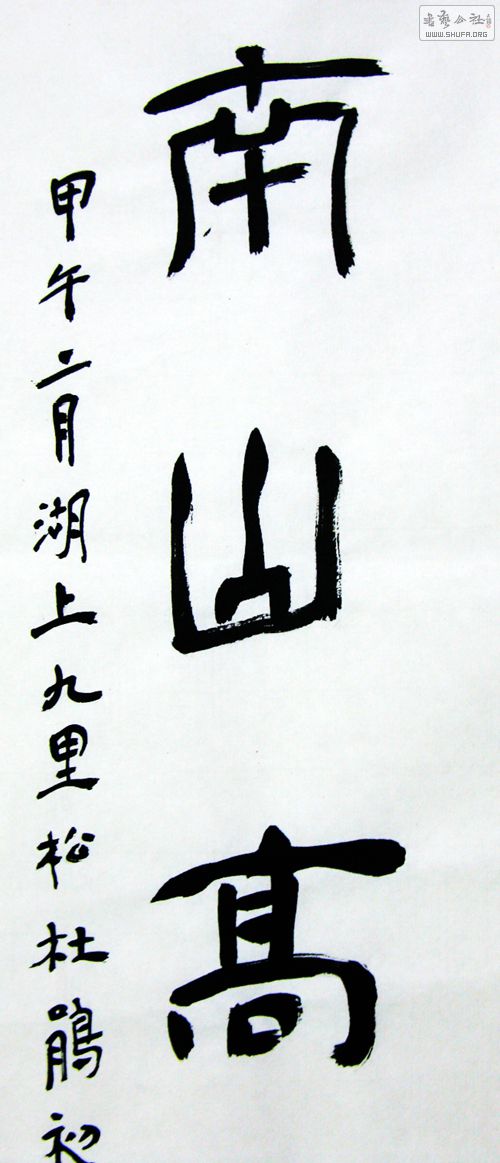 南山高
甲午二月湖上九里松杜鵑初
書藝公社
WWW.SHUFA.ORG